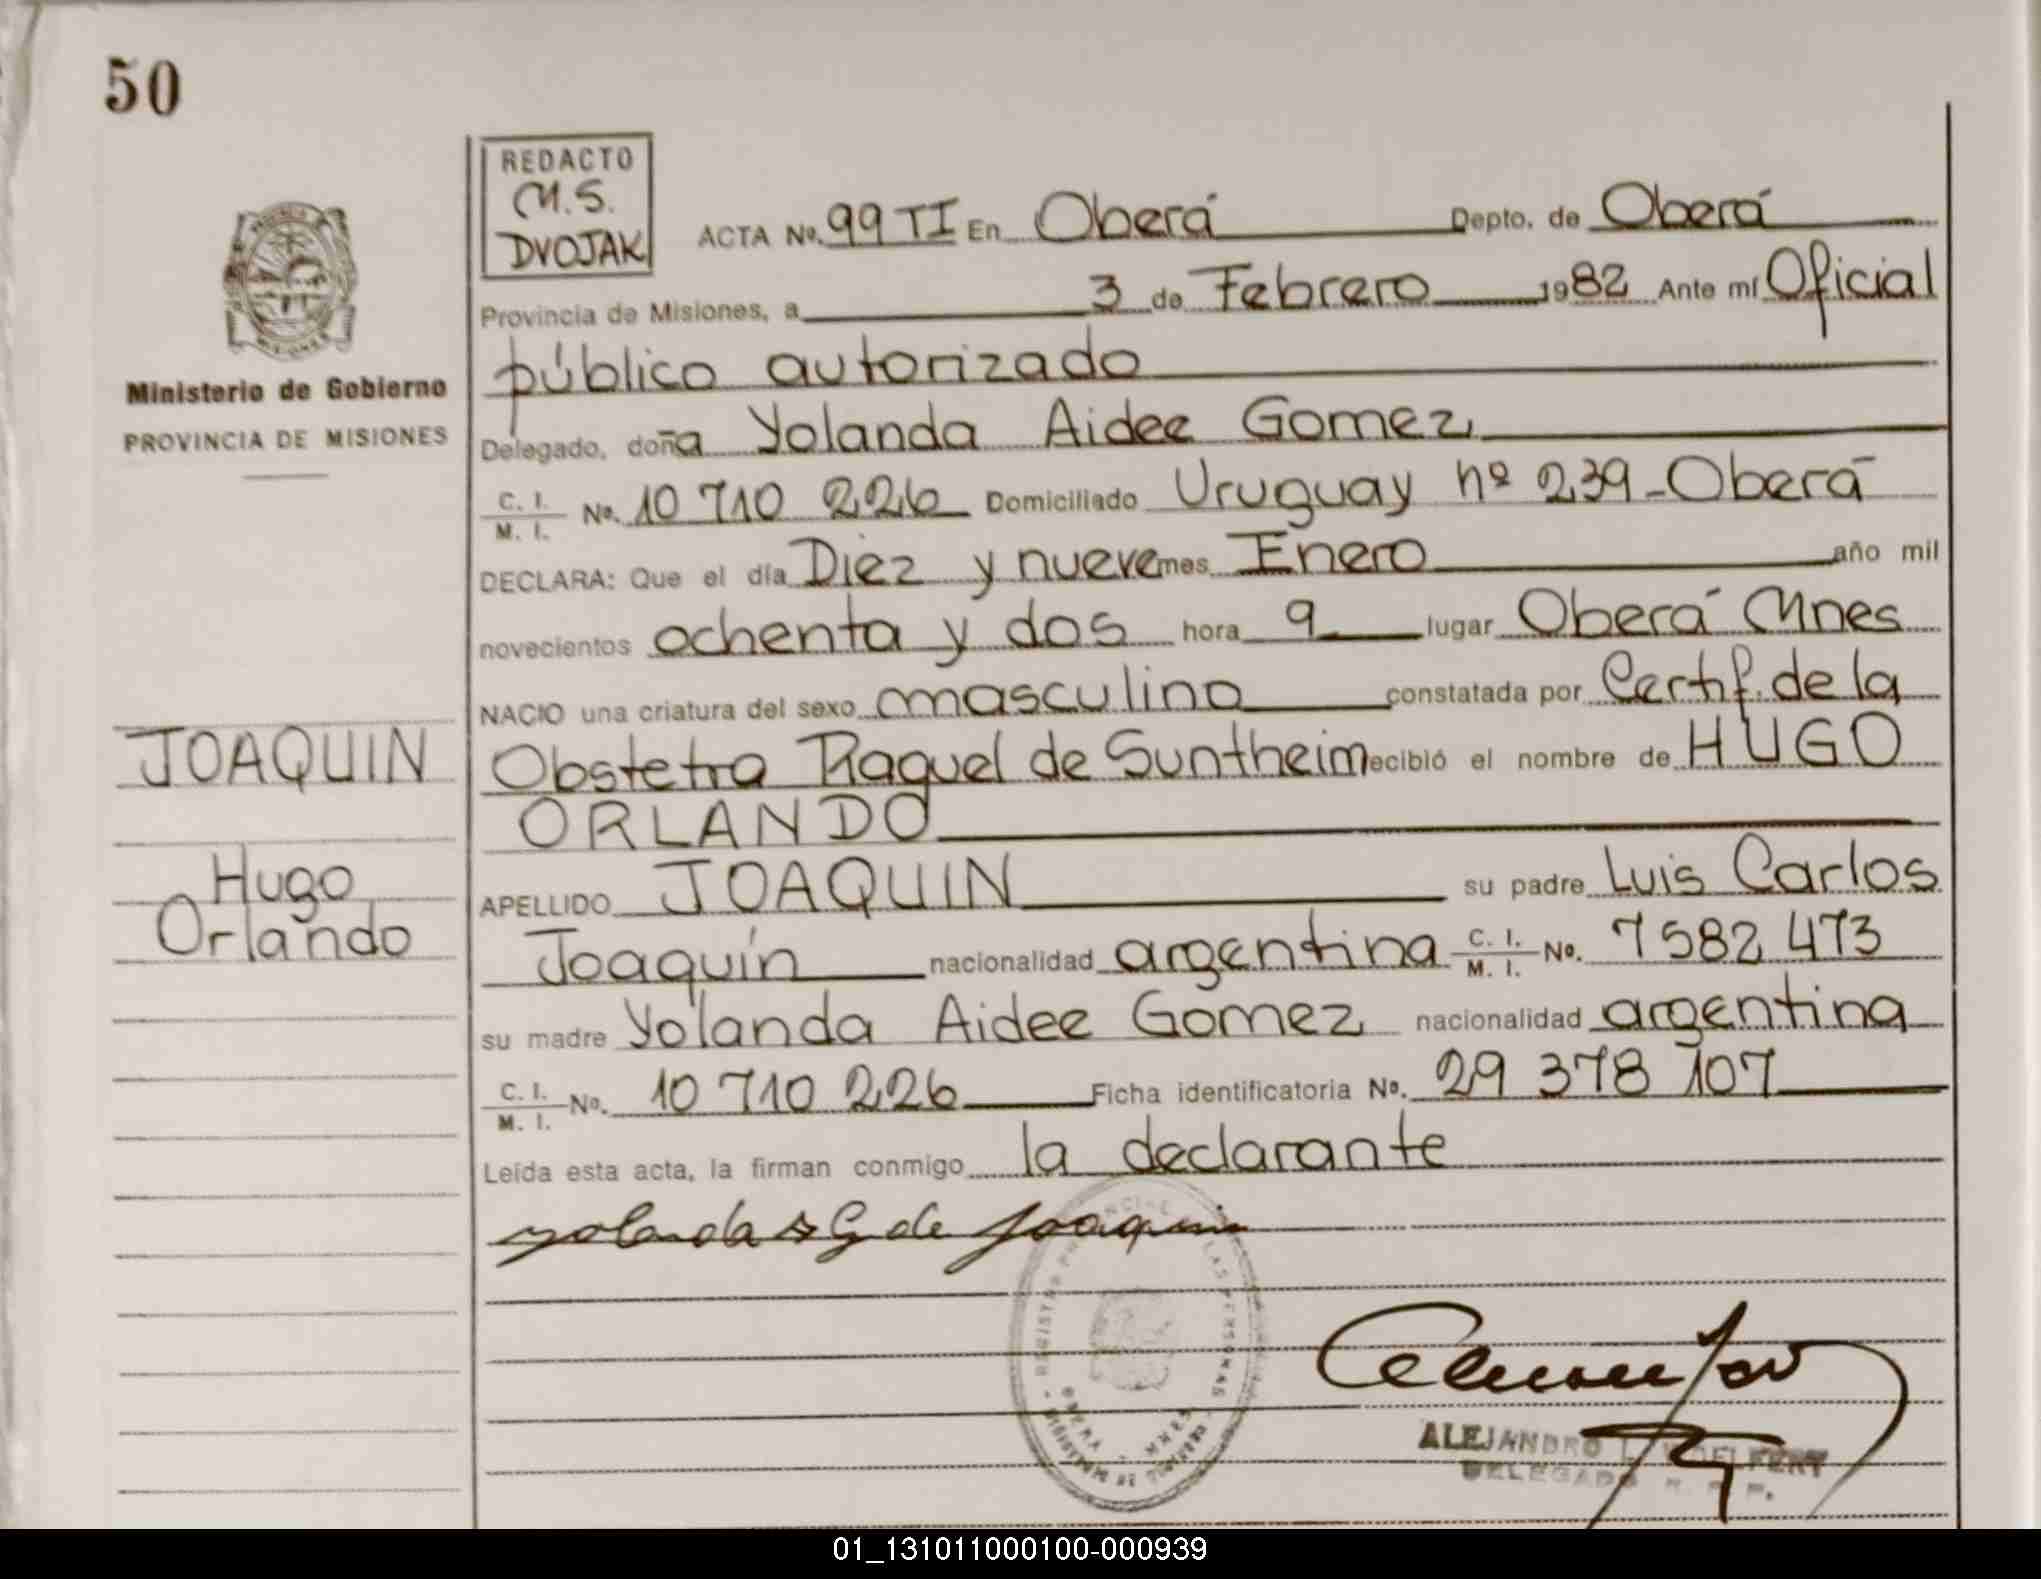 50
REDACTO
M.S.
DVOJAK
ACTA No. 99 TI En Oberá Depto. de Oberá
Provincia de Misiones, a 3 de Febrero 1982 Ante mí Oficial
público autorizado
Ministerio de Gobierno
PROVINCIA DE MISIONES
Delegado, doña Yolanda Aidee Gomez
C. I. / M. I. No. 10 710 226 Domiciliado Uruguay nº 239-Oberá
DECLARA: Que el día Diez y nueve mes Enero año mil
novecientos ochenta y dos hora 9 lugar Oberá Mnes
NACIO una criatura del sexo masculino constatada por Certif. de la
JOAQUIN
Obstetra Raquel de Suntheim recibió el nombre de HUGO
ORLANDO
Hugo
Orlando
APELLIDO JOAQUIN su padre Luis Carlos
Joaquín nacionalidad argentina C. I. / M. I. No. 7582 473
su madre Yolanda Aidee Gomez nacionalidad argentina
C. I. / M. I. No. 10 710 226 Ficha identificatoria No. 29 378 107
Leída esta acta, la firman conmigo la declarante
Yolanda A G de Joaquin
ALEJANDRO
DELEGADO
01_131011000100-000939